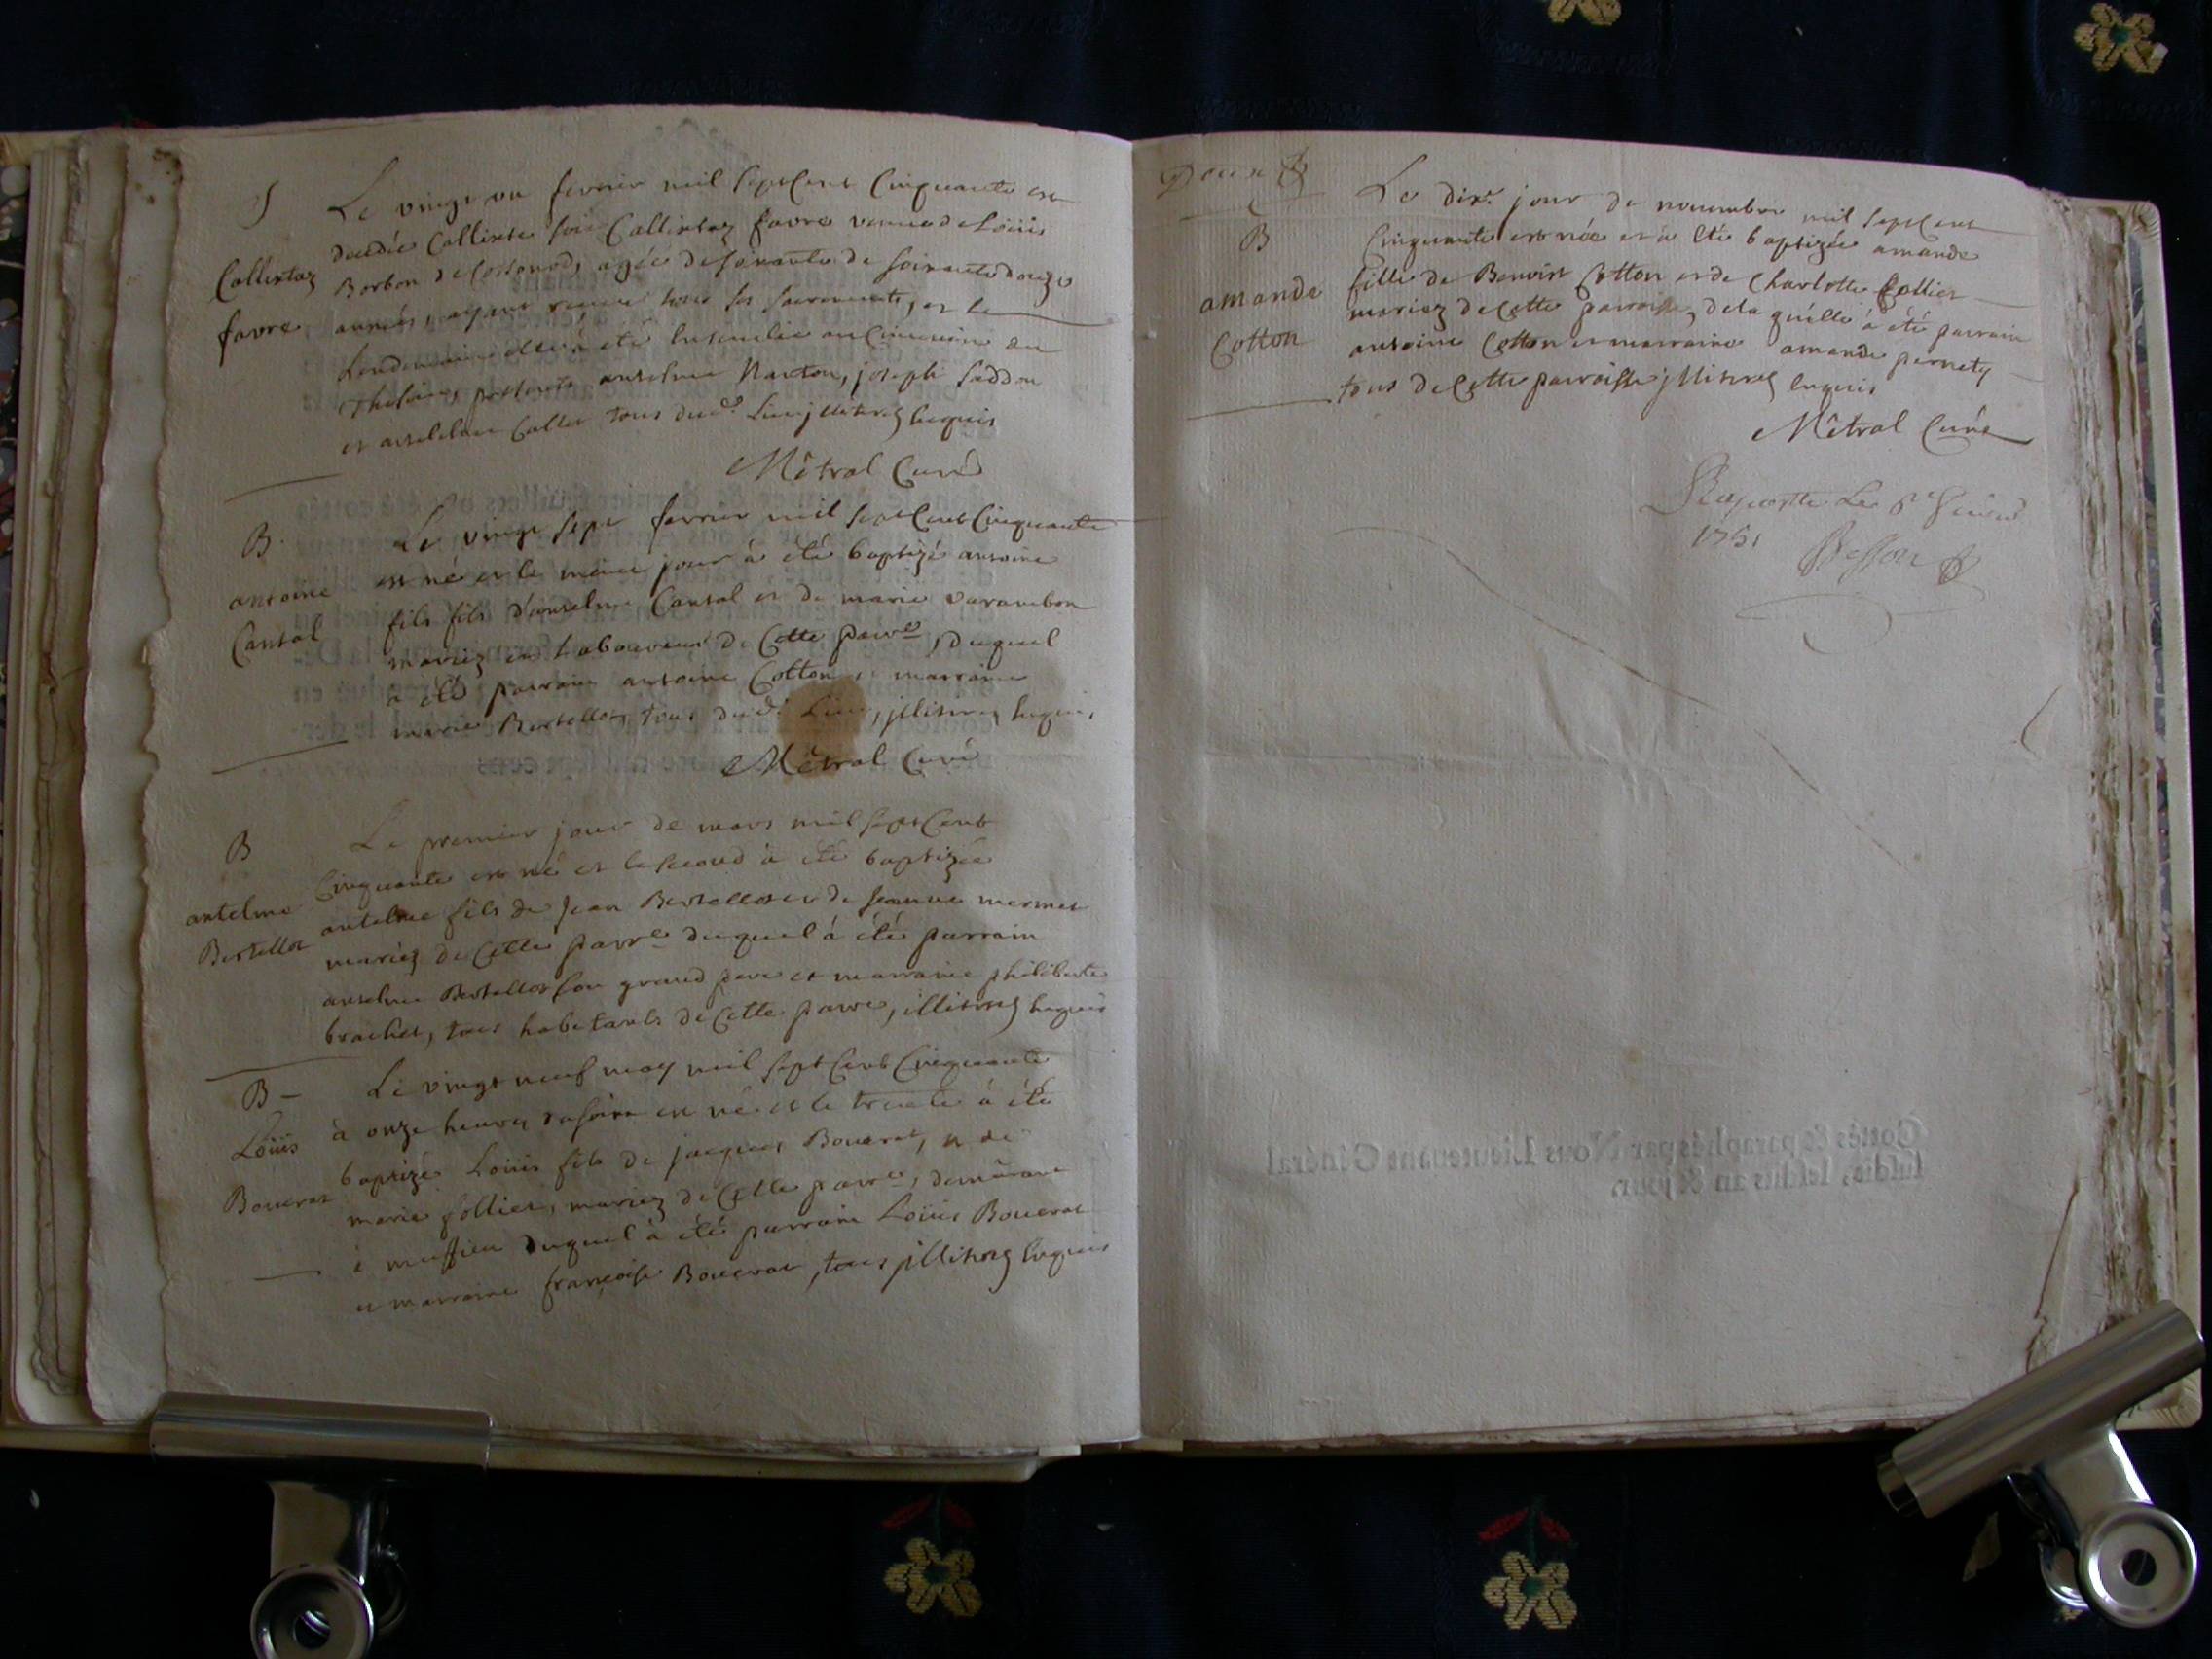 S
Callixtaz
favre
Le vingt un fevrier mil sept Cent Cinquante est
decedée Callixte soit Callixtaz favre veuve de Loüis
Borbon de Cossonod, agée de soixante de soixante douze
années, ayant reçeu tous ses sacrements, et le
Lendemain elle à été Ensevelie au Cimetiere du
presents antelme Marton, joseph
et antelme Collet tous dud. Lieu jllitérez Enquis
Mêtral Curé
B
antoine
Cantal
Le vingt sept fevrier mil sept Cent Cinquante
est né et le même jour à été baptizé antoine
fils fils d'antelme Cantal et de marie varambon
mariez et Laboureurs de Cette parr.e, duquel
à été parrain antoine Cotton et marraine
marie Bertellot, tous dud. Lieu, jllitérez Enquis
Mêtral Curé
B
antelme
Bertellot
Le premier jour de mars mil sept Cent
Cinquante est né et le second à été baptizée
antelme fils de Jean Bertellot et de jeanne mermet
mariez de Cette parr.e duquel à été parrain
antelme Bertellot son grand pere et marraine philiberte
brachet, tous habitants de Cette parr.e, illiterez Enquis
B
Loüis
Bouvrat
Le vingt neuf may mil sept Cent Cinquante
à onze heures du soire est né et le trente à été
baptizé Loüis fils de jacques Bouerat, et de
marie follier, mariez de Cette parr.e, demûrant
à muffieu duquel à été parrain Loüis Bouerat
et marraine françoise Bouerat, tous jllitérez Enquis
Deux
B
amande
Cotton
Le dix.e jour de novembre mil sept Cent
Cinquante est née et à été baptizée amande
fille de Benoist Cotton et de Charlotte Collier
mariez de Cette parroisse, de la quélle à été parrain
antoine Cotton et marraine amande pernety
tous de Cette parroisse jllitérez Enquis
Mêtral Curé
1751
Besson
Cottés & paraphés par Nous Lieutenant Général
susdit, lesdits an & jour.